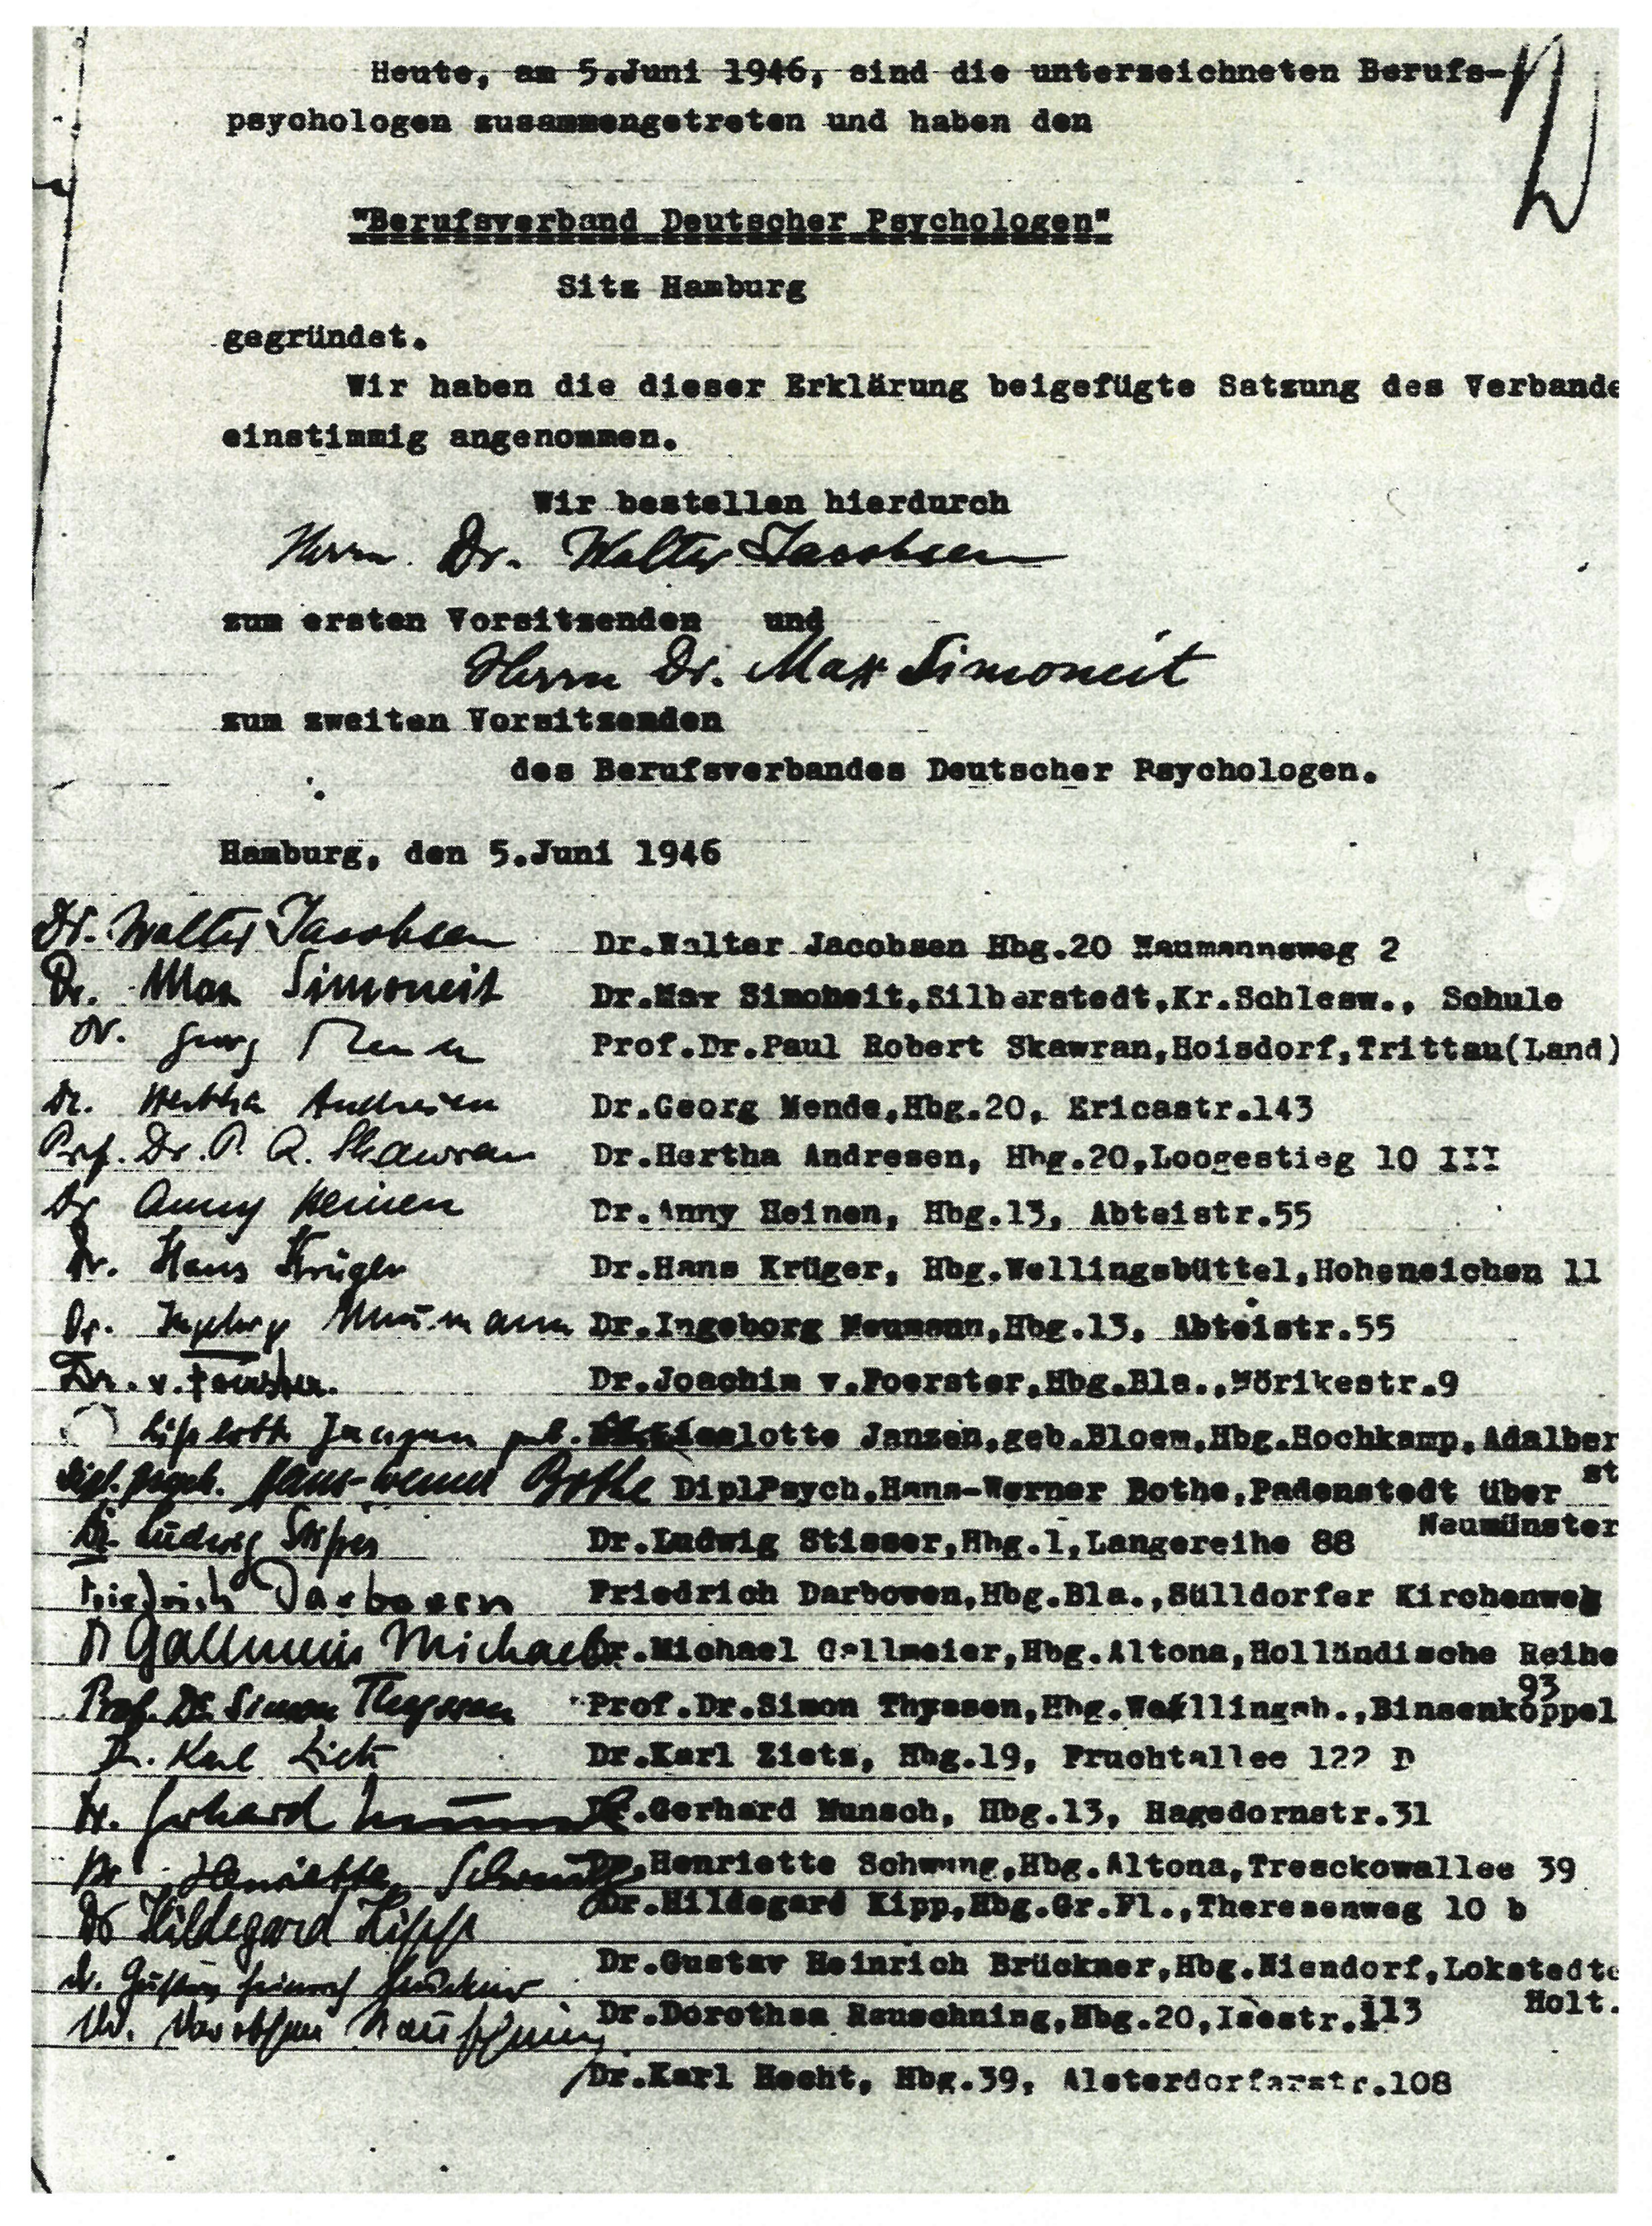 Heute, am 5.Juni 1946, sind die unterzeichneten Berufs-
psychologen zusammengetreten und haben den
"Berufsverband Deutscher Psychologen"
Sitz Hamburg
gegründet.
Wir haben die dieser Erklärung beigefügte Satzung des Verbande
einstimmig angenommen.
Wir bestellen hierdurch
Herrn Dr. Walter Jacobsen
zum ersten Vorsitzenden und
Herrn Dr. Max Simoneit
zum zweiten Vorsitzenden
des Berufsverbandes Deutscher Psychologen.
Hamburg, den 5.Juni 1946
Dr. Walter Jacobsen Dr.Walter Jacobsen Hbg.20 Naumannsweg 2
Dr. Max Simoneit Dr.Max Simoneit,Silberstedt,Kr.Schlesw., Schule
Dr. Georg Prof.Dr.Paul Robert Skawran,Hoisdorf,Trittau(Land)
Dr. Hertha Andresen Dr.Georg Mende,Hbg.20, Ericastr.143
Prof. Dr. P. R. Skawran Dr.Hertha Andresen, Hbg.20,Loogestieg 10 III
Dr Anny Heinen Dr.Anny Heinen, Hbg.13, Abteistr.55
Dr. Hans Krüger Dr.Hans Krüger, Hbg.Wellingsbüttel,Hoheneichen 11
Dr. Ingeborg Neumann Dr.Ingeborg Neumann,Hbg.13, Abteistr.55
Dr. v. Foerster. Dr.Joachim v.Foerster,Hbg.Bla.,Mörikestr.9
Lieselotte Janzen geb. lotte Janzen,geb.Bloem,Hbg.Hochkamp,Adalber
st
Dipl. Psych. Hans-Werner Bothe DiplPsych.Hans-Werner Bothe,Padenstedt über
Neumünster
Dr. Ludwig Stisser Dr.Ludwig Stisser,Hbg.1,Langereihe 88
Friedrich Darboven Friedrich Darboven,Hbg.Bla.,Sülldorfer Kirchenweg
Dr Gallmeier Michael Dr.Michael Gallmeier,Hbg.Altona,Holländische Reihe
93
Prof. Dr. Simon Thyssen Prof.Dr.Simon Thyssen,Hbg.Wellingsb.,Binsenkoppel
Dr. Karl Zietz Dr.Karl Zietz, Hbg.19, Fruchtallee 122 D
Dr. Gerhard Munsch Dr.Gerhard Munsch, Hbg.13, Hagedornstr.31
Dr. Henriette Schwung Dr.Henriette Schwung,Hbg.Altona,Tresckowallee 39
Dr Hildegard Kipp Dr.Hildegard Kipp,Hbg.Gr.Fl.,Theresenweg 10 b
Dr. Gustav Heinrich Brückner Dr.Gustav Heinrich Brückner,Hbg.Niendorf,Lokstedte
Holt.
Dr. Dorothea Rauschning Dr.Dorothea Rauschning,Hbg.20,Isestr.113
Dr.Karl Hecht, Hbg.39, Alsterdorferstr.108